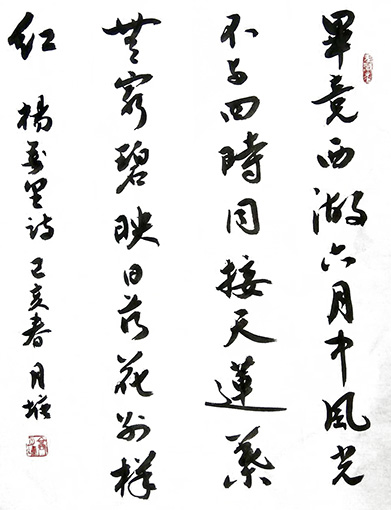 畢竟西湖六月中風光
不与四時同接天蓮葉
無窮碧映日荷花別樣
紅 楊萬里詩 己亥春月塘